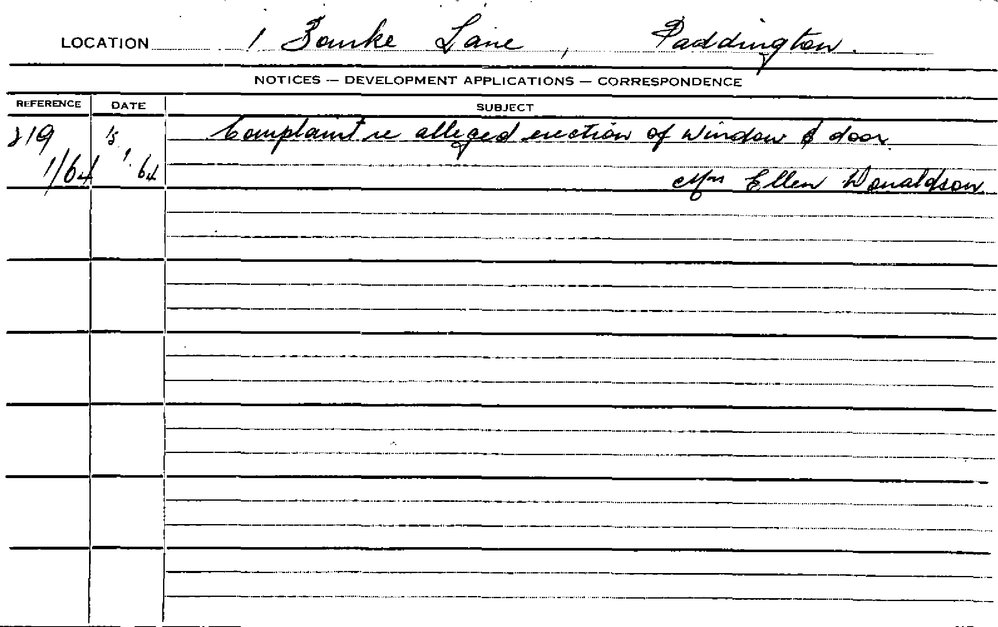 LOCATION 1 Bourke Lane, Paddington.
NOTICES — DEVELOPMENT APPLICATIONS — CORRESPONDENCE
REFERENCE DATE SUBJECT
219 Complaint re alleged erection of window & door.
1/64 1.64 Mrs Ellen Donaldson